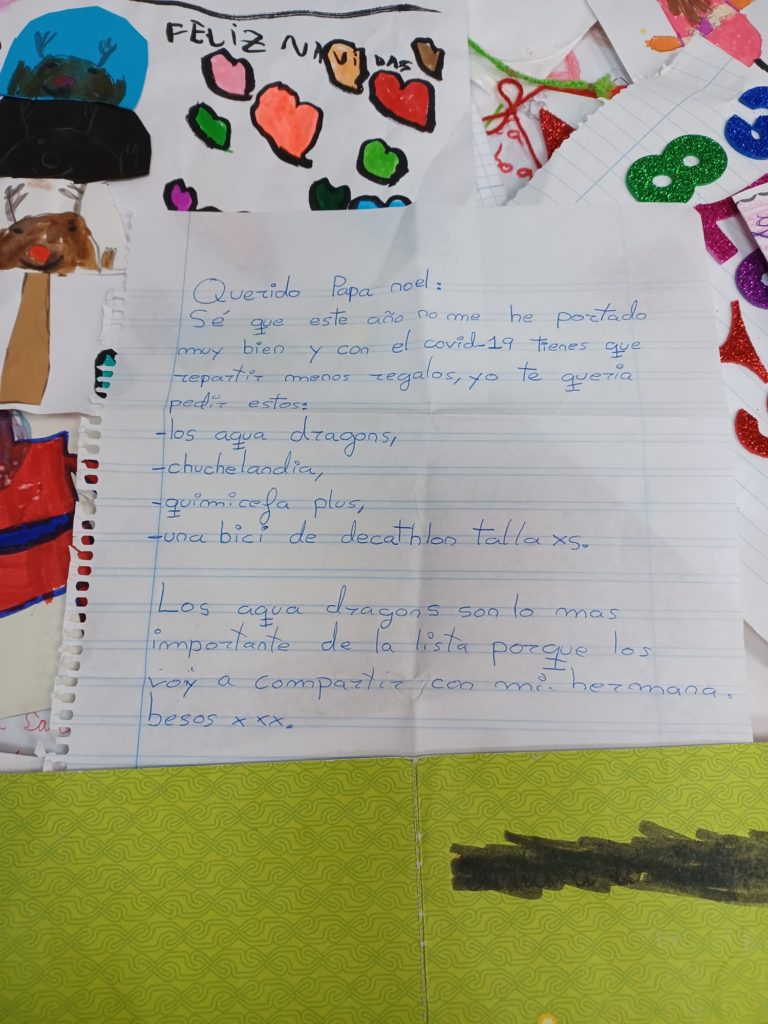 FELIZ NAVIDAS
Querido Papa noel:
Sé que este año no me he portado
muy bien y con el covid-19 tienes que
repartir menos regalos, yo te queria
pedir estos:
-los aqua dragons,
-chuchelandia,
-quimicefa plus,
-una bici de decathlon talla xs.
Los aqua dragons son lo mas
importante de la lista porque los
voy a compartir, con mi hermana.
besos x xx.
8